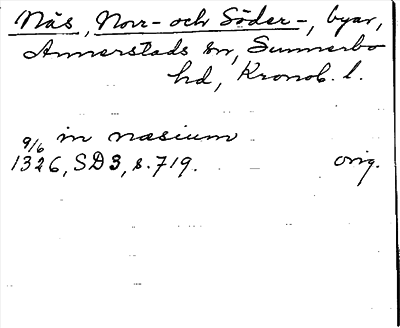 Näs, Norr- och Söder-, byar,
Annerstads sn, Sunnerbo
hd, Kronob. l.
9/6 in næsium
1326, SD3, s. 719. orig.